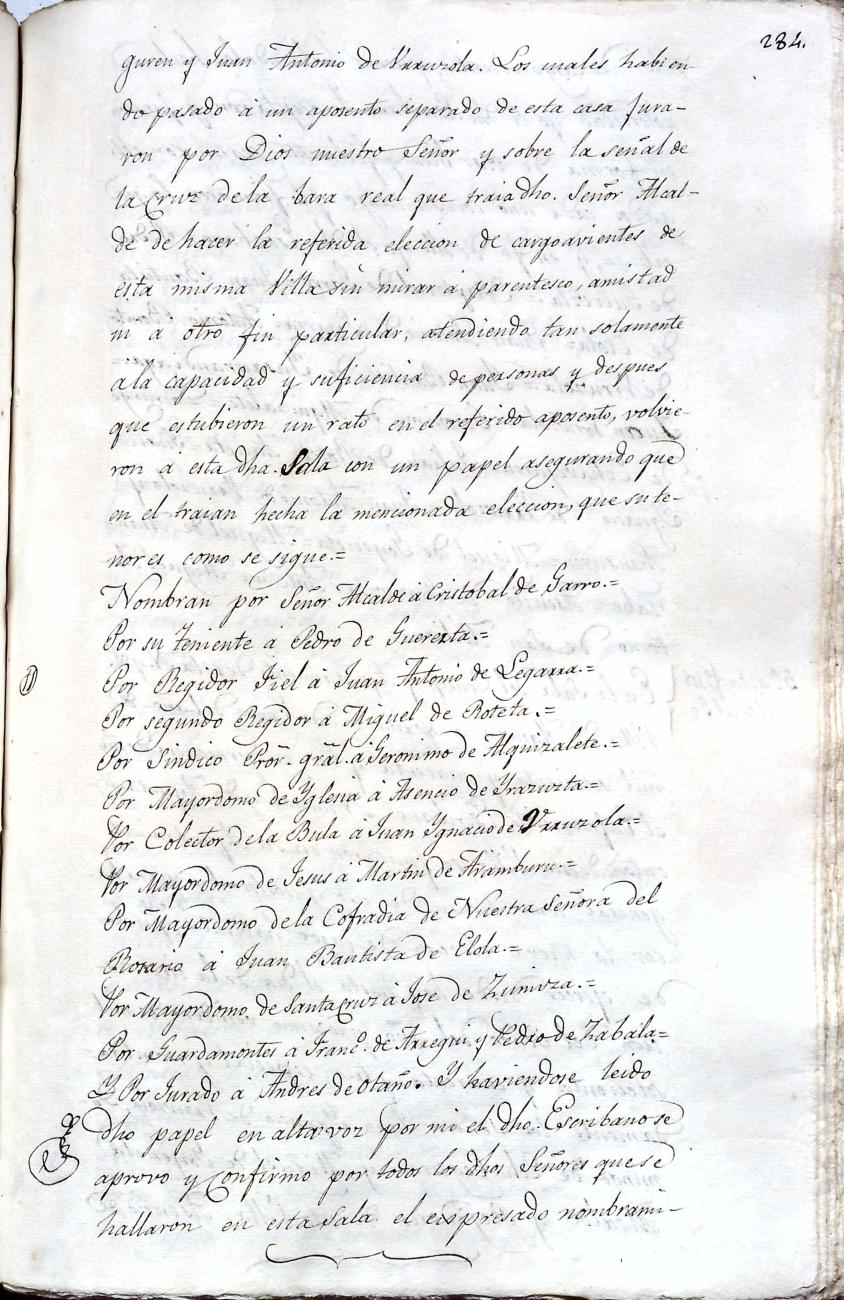 284.
guren y Juan Antonio de Vrruzola. Los cuales habien
do pasado à un aposento separado de esta casa Jura-
ron por Dios nuestro Señor y sobre la señal de
la Cruz dela bara real que traia dho. Señor Alcal-
de de hacer la referida eleccion de cargoavientes de
esta misma Villa sin mirar à parentesco, amistad
ni à otro fin particular, atendiendo tan solamente
ala capacidad y suficiencia de personas y despues
que estubieron un rato en el referido aposento, volvie-
ron à esta dha. Sala con un papel asegurando que
en el traian hecha la mencionada eleccion, que su te-
nor es como se sigue.=
Nombran por Señor Alcalde à Cristobal de Garro.=
Por su Teniente à Pedro de Guerezta.=
Por Regidor Fiel à Juan Antonio de Legarra.=
Por segundo Regidor à Miguel de Roteta.=
Por Sindico Pror. gral. à Geronimo de Alquizalete.=
Por Mayordomo de Yglesia à Asencio de Yrazuzta.=
Por Colector dela Bula à Juan Ygnacio de Vrruzola.=
Por Mayordomo de Jesus à Martin de Aramburu.=
Por Mayordomo dela Cofradia de Nuestra Señora del
Rosario à Juan Bautista de Elola.=
Por Mayordomo de Santa Cruz à Jose de Zunivza.=
Por Guardamontes à Franco. de Arregui y Pedro de Zabala=
Y Por Jurado à Andres de Otaño. Y haviendose leido
dho papel en alta voz por mi el dho. Escribano se
aprovo y confirmo por todos los dhos Señores que se
hallaron en esta Sala el expresado nombrami-